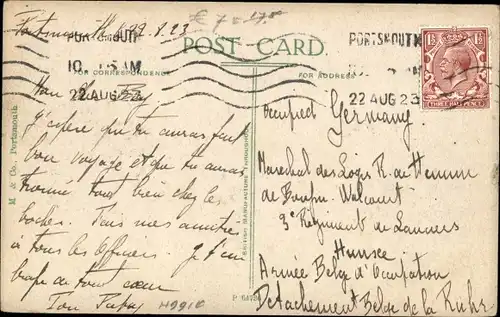 € 7 = 17.00
22.8.23
POST CARD.
FOR CORRESPONDENCE
FOR ADDRESS
PORTSMOUTH
22 AUG 23
PORTSMOUTH
22 AUG 23
THREE HALF PENCE
M. & Co., Portsmouth
BRITISH MANUFACTURE THROUGHOUT
J'espère que tu auras fait
bon voyage et que tu auras
trouvé tout bien chez les
boches. Fais mes amitiés
à tous les officiers. Je t'em
brasse de tout cœur
Ton Papa
H991c
Occupied Germany
Maréchal des Logis R. de
de
3e Régiment de Lanciers
Armée Belge d'Occupation
Détachement Belge de la Ruhr